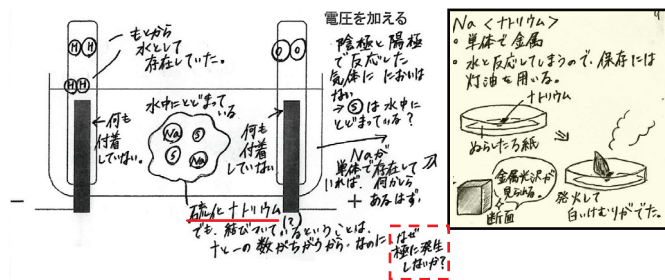 電圧を加える
もともから
水として
存在していた。
H H
H H
O O
陰極と陽極
で反応した
気体に においは
ない
→Ⓢは水中に
とどまっている?
水中にとどまって
いる
Na S
S Na
←何も
付着
していない。
何も
付着
していない
Naが
単体で存在して
いれば、何かしら
あるはず。
− +
硫化ナトリウム(?)
でも、結びついているということは、
+と−の数がちがうから。なのに
なぜ
極に発生
しないか?
Na <ナトリウム>
・単体で金属
・水と反応してしまうので、保存には
灯油を用いる。
ナトリウム
ぬらしたろ紙
金属光沢が
見られる。
断面
発火して
白いけむりがでた。